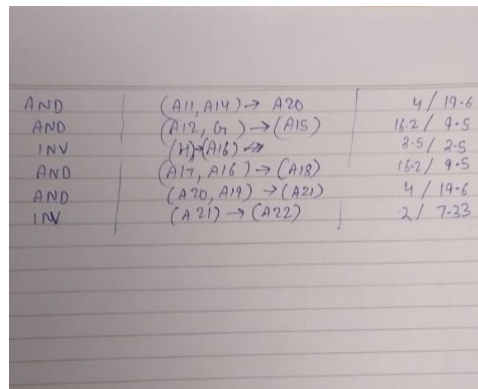 AND (A11, A14) → A20 4 / 19.6
AND (A12, G) → (A15) 16.2 / 9.5
INV (H) → (A16) 3.5 / 2.5
AND (A17, A16) → (A18) 16.2 / 9.5
AND (A20, A19) → (A21) 4 / 19.6
INV (A21) → (A22) 2 / 7.33